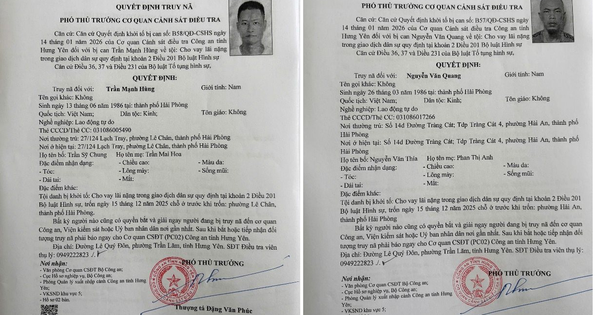 QUYẾT ĐỊNH TRUY NÃ
PHÓ THỦ TRƯỞNG CƠ QUAN CẢNH SÁT ĐIỀU TRA
Căn cứ: Căn cứ Quyết định khởi tố bị can số: B57/QĐ-CSHS ngày
14 tháng 01 năm 2026 của Cơ quan Cảnh sát điều tra Công an tỉnh
Hưng Yên đối với bị can Trần Mạnh Hùng về tội: Cho vay lãi nặng
trong giao dịch dân sự quy định tại khoản 2 Điều 201 Bộ luật Hình sự,
Căn cứ Điều 36, 37 và Điều 231 của Bộ luật Tố tụng hình sự,
QUYẾT ĐỊNH:
Truy nã đối với: Trần Mạnh Hùng Giới tính: Nam
Tên gọi khác: Không
Sinh ngày 13 tháng 06 năm 1986 tại: thành phố Hải Phòng
Quốc tịch: Việt Nam; Dân tộc: Kinh; Tôn giáo: Không
Nghề nghiệp: Lao động tự do
Thẻ CCCD/Thẻ CC: 031086005490
Nơi thường trú: 27/124 Lạch Tray, phường Lê Chân, thành phố Hải Phòng
Nơi ở hiện tại: 27/124 Lạch Tray, phường Lê Chân, thành phố Hải Phòng
Họ tên bố: Trần Sỹ Chung Họ tên mẹ: Trần Mai Hoa
Đặc điểm nhận dạng: - Chiều cao: - Màu da:
- Tóc: - Lông mày: - Sống mũi:
- Dái tai: - Mắt:
Đặc điểm khác:
Tội danh bị khởi tố: Cho vay lãi nặng trong giao dịch dân sự quy định tại khoản 2 Điều 201
Bộ luật Hình sự, trốn ngày 15 tháng 12 năm 2025 chỗ ở trước khi trốn: phường Lê Chân,
thành phố Hải Phòng.
Bất kỳ người nào cũng có quyền bắt và giải ngay người đang bị truy nã đến cơ quan
Công an, Viện kiểm sát hoặc Uỷ ban nhân dân nơi gần nhất. Sau khi bắt hoặc tiếp nhận đối
tượng truy nã phải báo ngay cho Cơ quan CSĐT (PC02) Công an tỉnh Hưng Yên.
Địa chỉ: Đường Lê Quý Đôn, phường Trần Lãm, tỉnh Hưng Yên. SĐT Điều tra viên thụ
lý: 0949222823
Nơi nhận:
- Văn phòng Cơ quan CSĐT Bộ Công an;
- Cục Hồ sơ nghiệp vụ, Bộ Công an;
- Phòng Quản lý xuất nhập cảnh Công an tỉnh Hưng
Yên;
- VKSND khu vực 5;
- Hồ sơ 02 bản.
PHÓ THỦ TRƯỞNG
Thượng tá Đặng Văn Phúc
PHÓ THỦ TRƯỞNG CƠ QUAN CẢNH SÁT ĐIỀU TRA
Căn cứ: Căn cứ Quyết định khởi tố bị can số: B55/QĐ-CSHS ngày
14 tháng 01 năm 2026 của Cơ quan Cảnh sát điều tra Công an tỉnh
Hưng Yên đối với bị can Nguyễn Văn Quang về tội: Cho vay lãi nặng
trong giao dịch dân sự quy định tại khoản 2 Điều 201 Bộ luật Hình sự,
Căn cứ Điều 36, 37 và Điều 231 của Bộ luật Tố tụng hình sự,
QUYẾT ĐỊNH:
Truy nã đối với: Nguyễn Văn Quang Giới tính: Nam
Tên gọi khác: Không
Sinh ngày 26 tháng 03 năm 1986 tại: thành phố Hải Phòng
Quốc tịch: Việt Nam; Dân tộc: Kinh; Tôn giáo: Không
Nghề nghiệp: Lao động tự do
Thẻ CCCD/Thẻ CC: 031086017266
Nơi thường trú: Số 14đ Đường Tràng Cát; Tdp Tràng Cát 4, phường Hải An, thành phố
Hải Phòng
Nơi ở hiện tại: Số 14đ Đường Tràng Cát; Tdp Tràng Cát 4, phường Hải An, thành phố
Hải Phòng
Họ tên bố: Nguyễn Văn Thìa Họ tên mẹ: Phan Thị Anh
Đặc điểm nhận dạng: - Chiều cao: - Màu da:
- Tóc: - Lông mày: - Sống mũi:
- Dái tai: - Mắt:
Đặc điểm khác:
Tội danh bị khởi tố: Cho vay lãi nặng trong giao dịch dân sự quy định tại khoản 2 Điều 201
Bộ luật Hình sự, trốn ngày 15 tháng 12 năm 2025 chỗ ở trước khi trốn: phường Hải An,
thành phố Hải Phòng.
Bất kỳ người nào cũng có quyền bắt và giải ngay người đang bị truy nã đến cơ quan
Công an, Viện kiểm sát hoặc Uỷ ban nhân dân nơi gần nhất. Sau khi bắt hoặc tiếp nhận đối
tượng truy nã phải báo ngay cho Cơ quan CSĐT (PC02) Công an tỉnh Hưng Yên.
Địa chỉ: Đường Lê Quý Đôn, phường Trần Lãm, tỉnh Hưng Yên. SĐT Điều tra viên thụ
lý: 0949222823
Nơi nhận:
- Văn phòng Cơ quan CSĐT Bộ Công an;
- Cục Hồ sơ nghiệp vụ, Bộ Công an;
- Phòng Quản lý xuất nhập cảnh Công an tỉnh Hưng
Yên;
- VKSND khu vực 5;
PHÓ THỦ TRƯỞNG